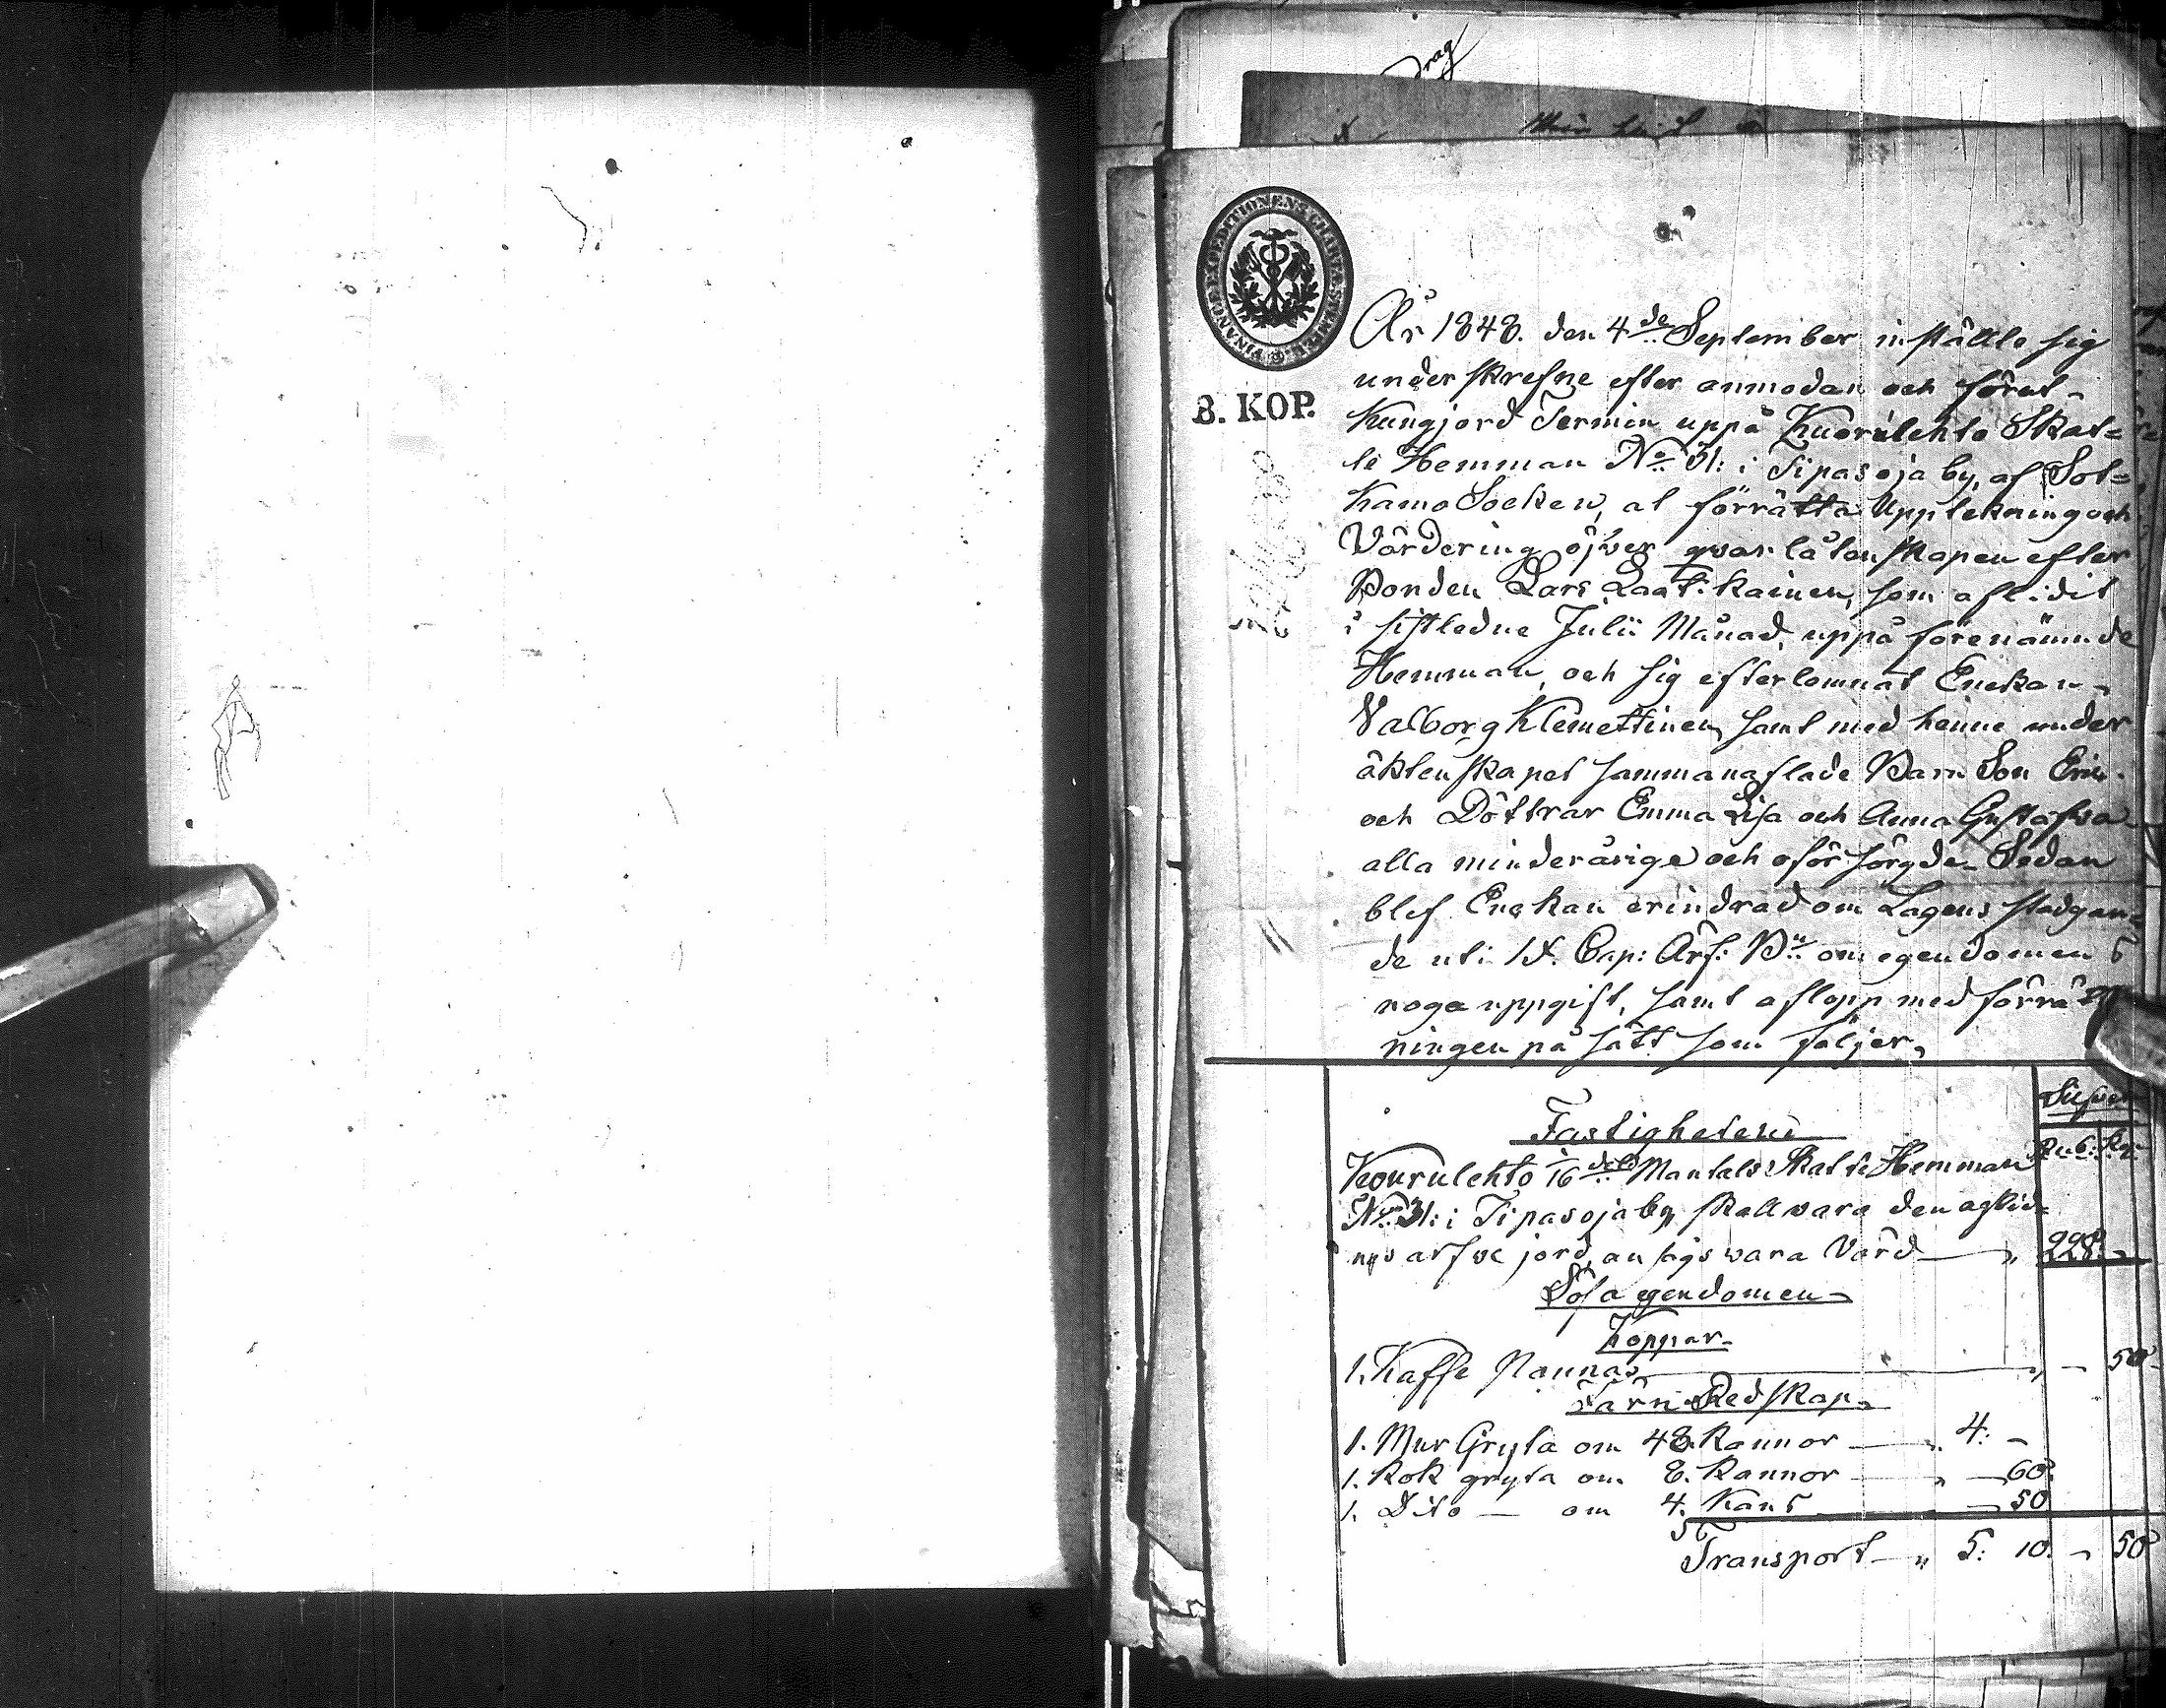 FINANCE EXPEDITIONENS CHARTÆ STEMPEL
8. KOP.
År 1848. den 4de September instälte sig
underskrefne efter anmodan och förut-
kungjord Termin uppå Kuorulehto Skat=
te Hemman No 31: i Tipasoja by, af Sot=
kamo Socken, at förrätta Uppteckning och
Värdering öfver qvarlåtenskapen efter
Bonden Lars Laatikainen, som aflidit
i sistledne Julii Månad, uppå förenämnde
Hemman, och sig efterlemnat Enckan
Valborg Klemettinen, samt med henne under
äktenskapet sammanaflade Barn Son Eric
och Döttrar Emma Lisa och Anna Gustafva
alla minderårige och oförsörgde. Sedan
blef Enckan erindrad om Lagens stadgan=
de uti IX. Cap: Ärf: Bn om egendomens
noga uppgift, samt aflopp med förrätt
ningen på sätt som följer,
Silfver
Fastigheten
Rub. Kp.
Kourulehto 1/16 dels Mantals Skatte Hemman
No 31: i Tipasoja by, skall vara den aflid=
nes arfve jord, ansågs vara Värd — " 228. -
Lösa egendomen
Koppar
1. Kaffe Panna — " - 50
Järn Redskap
1. Mur Gryta om 48. Kannor — " 4: -
1. Kok gryta om 8. Kannor — " — 60.
1. Dito — om 4. Kans — 50
Transport — " 5: 10. - 50